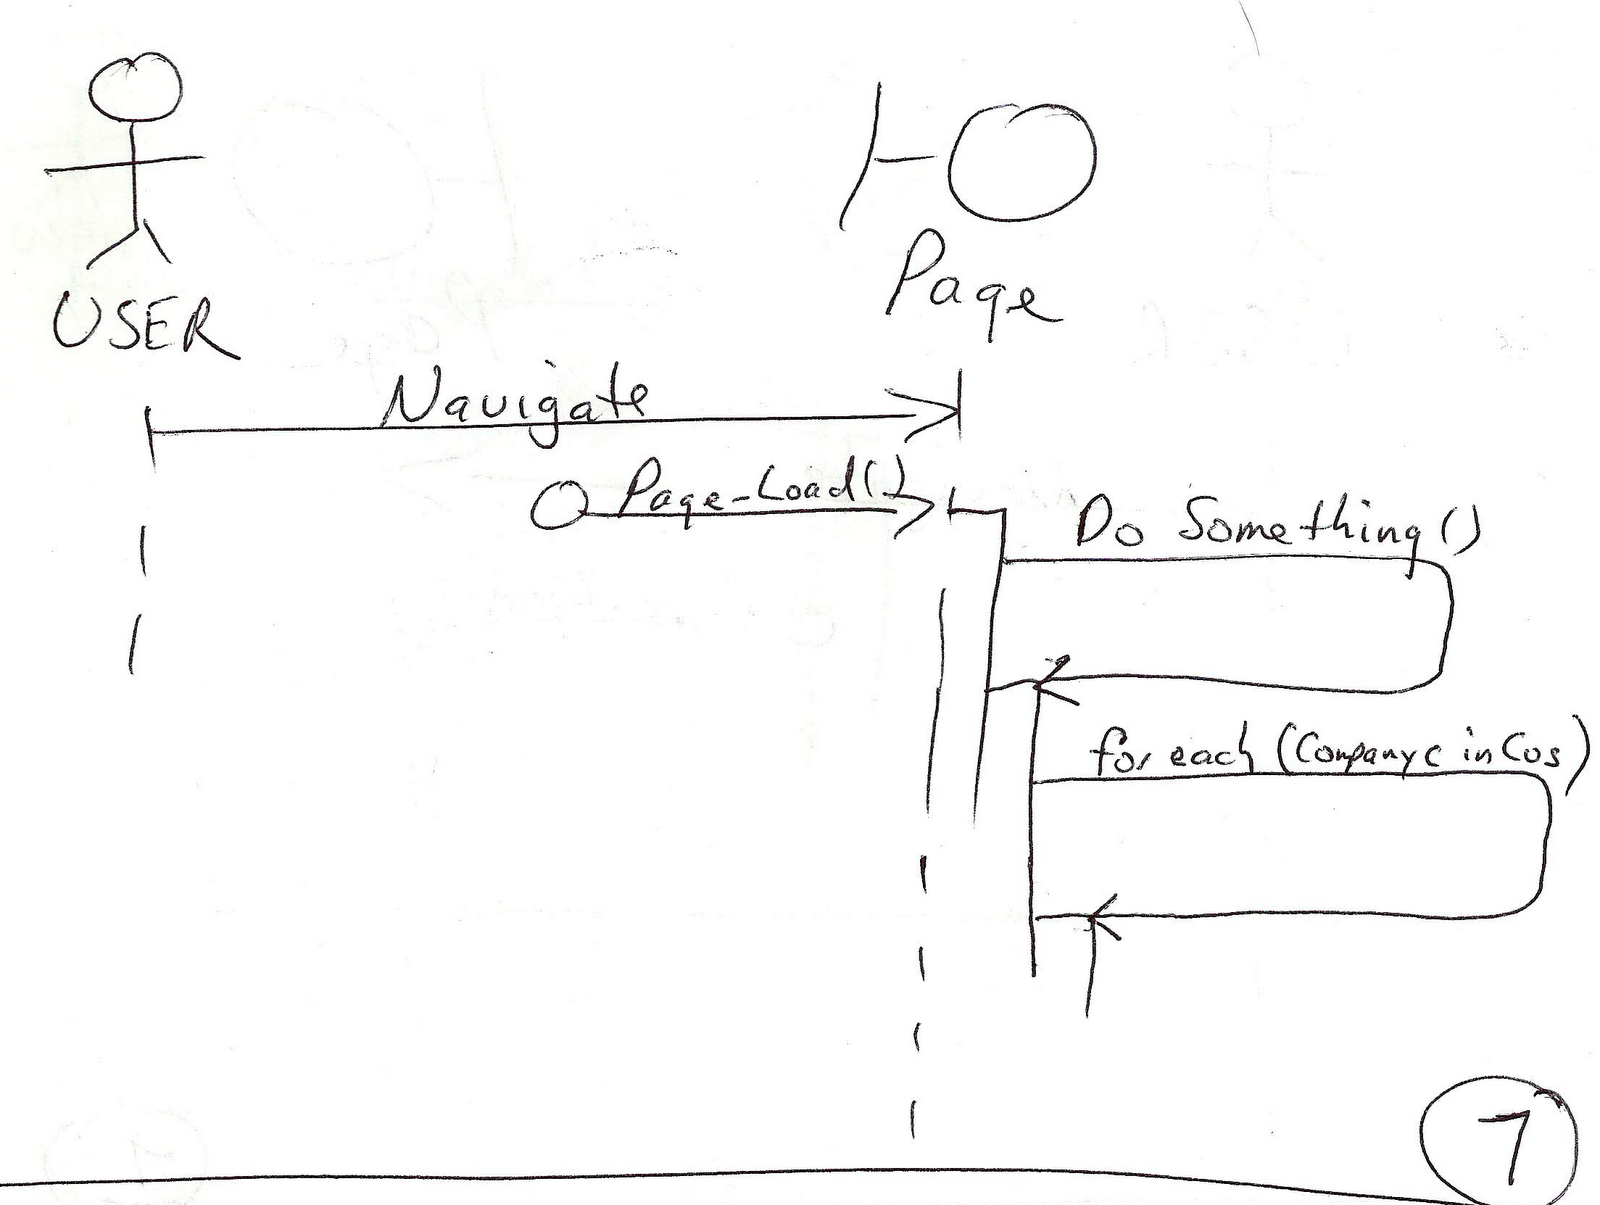 USER
Page
Navigate
Page-Load()
Do Something()
for each (Company c in Cos)
7